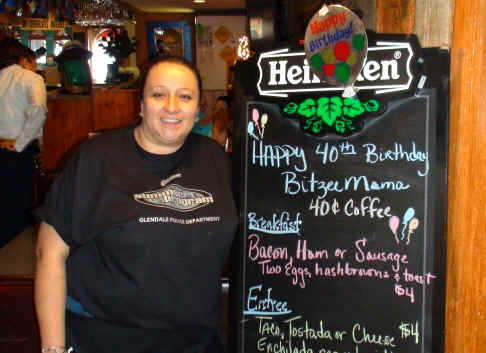 Happy
Birthday!
Heineken
HAPPY 40th Birthday
BitzeeMama
40¢ Coffee
Breakfast
Bacon, Ham or Sausage
Two Eggs, hashbrowns & toast
$4
Entree
Taco, Tostada or Cheese $4
Enchilada
GLENDALE POLICE DEPARTMENT